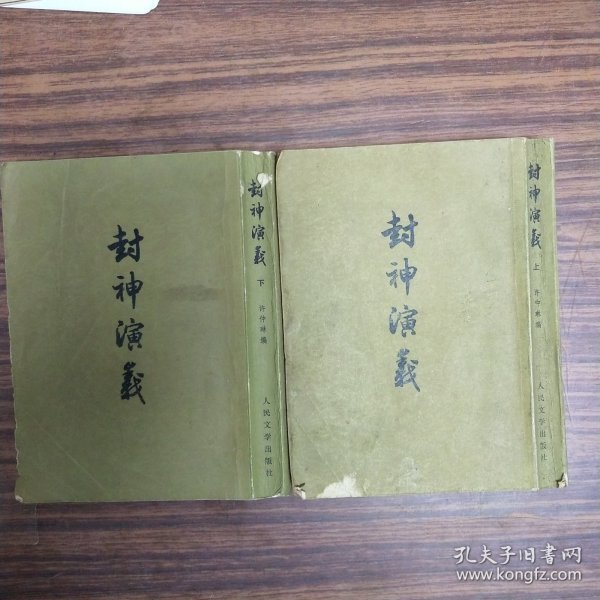 封神演義
封神演義
下
许仲琳编
人民文学出版社
封神演義
封神演義
上
许仲琳编
人民文学出版社
孔夫子旧书网
www.kongfz.com